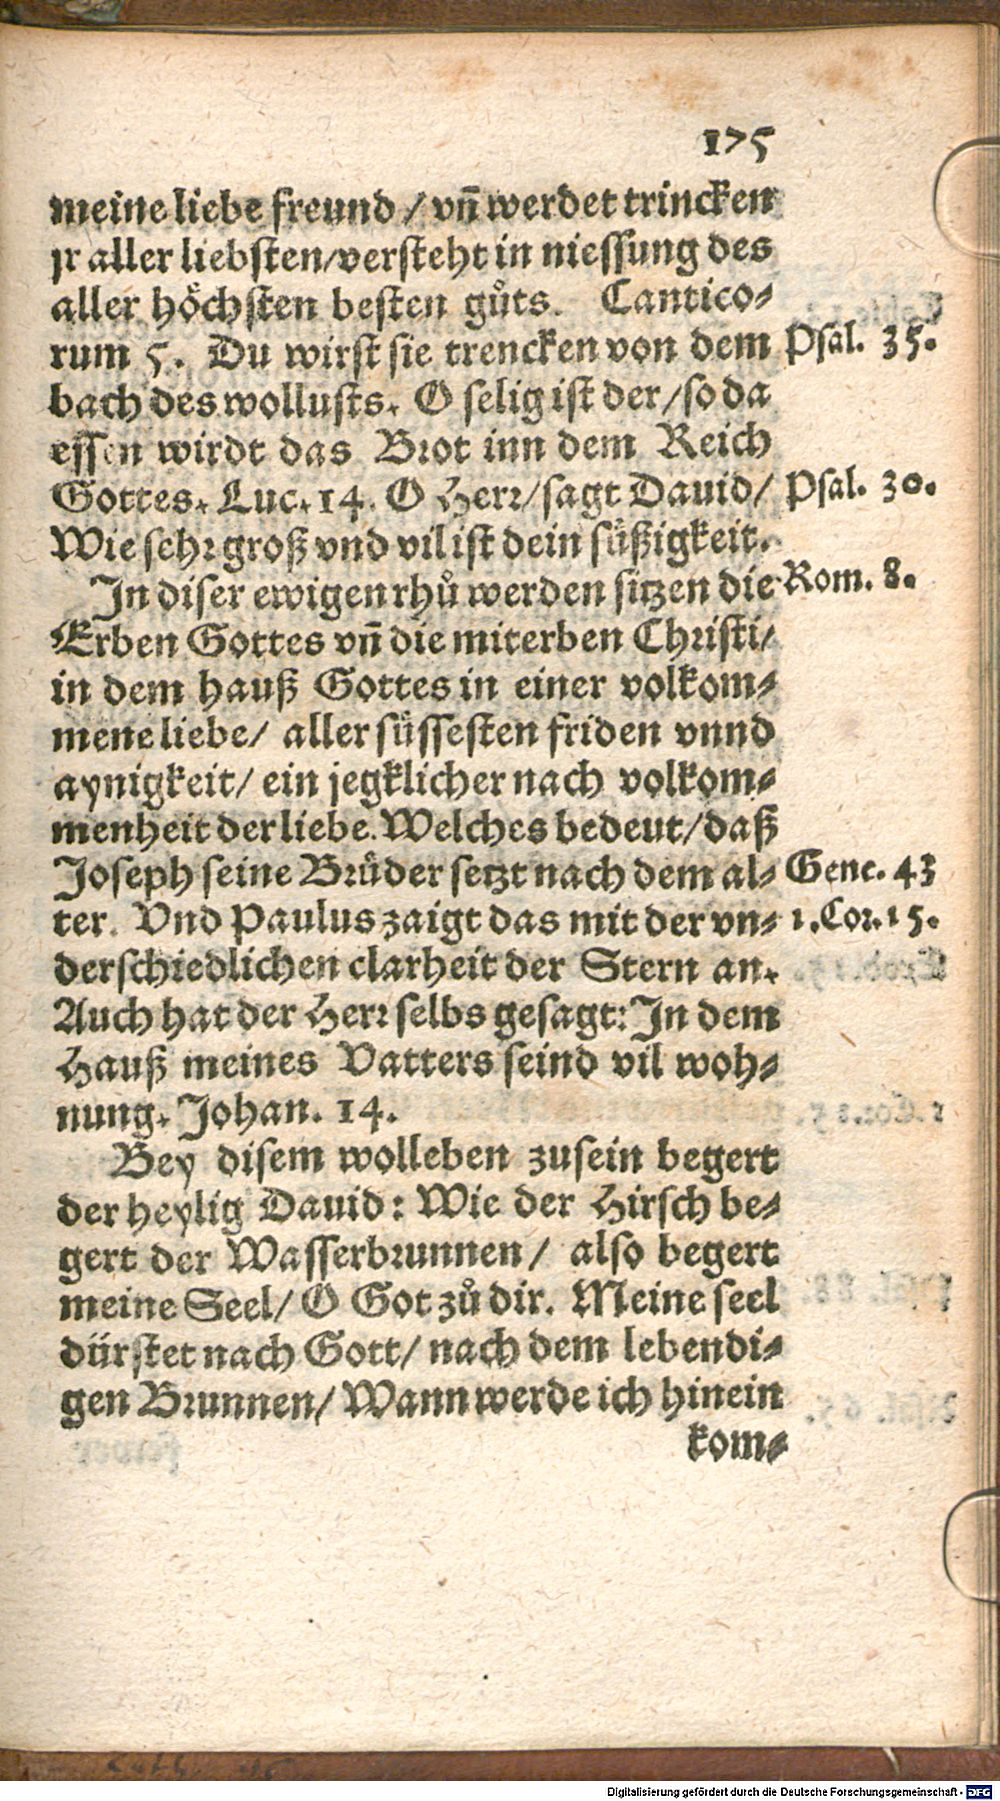 175
meine liebe freund / vñ werdet trincken
jr aller liebsten/versteht in niessung des
aller höchsten besten gůts. Cantico-
rum 5. Du wirst sie trencken von dem Psal. 35.
bach des wollusts. O selig ist der/so da
essen wirdt das Brot inn dem Reich
Gottes. Luc. 14. O Herr/sagt Dauid/ Psal. 30.
Wie sehr groß vnd vil ist dein süßigkeit.
In diser ewigen rhů werden sitzen die Rom. 8.
Erben Gottes vñ die miterben Christi/
in dem hauß Gottes in einer volkom-
mene liebe/ aller süssesten friden vnnd
aynigkeit/ ein jegklicher nach volkom-
menheit der liebe. Welches bedeut/daß
Joseph seine Brůder setzt nach dem al- Gene. 43
ter. Vnd Paulus zaigt das mit der vn- 1. Cor. 15.
derschiedlichen clarheit der Stern an.
Auch hat der Herr selbs gesagt: In dem
Hauß meines Vatters seind vil woh-
nung. Johan. 14.
Bey disem wolleben zusein begert
der heylig Dauid: Wie der Hirsch be-
gert der Wasserbrunnen/ also begert
meine Seel/ O Got zů dir. Meine seel
dürstet nach Gott/ nach dem lebendi-
gen Brunnen/ Wann werde ich hinein
kom-
Digitalisierung gefördert durch die Deutsche Forschungsgemeinschaft - DFG